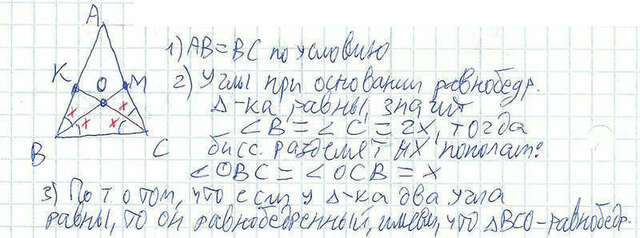 A
K O M
x x
x x
B C
1) AB=BC по условию
2) Углы при основании равнобедр.
Δ-ка равны, значит
∠B=∠C=2x, тогда
бисс. разделят их пополам:
∠OBC=∠OCB=x
3) По т. о том, что если у Δ-ка два угла
равны, то он равнобедренный, имеем, что ΔBCO-равнобедр.